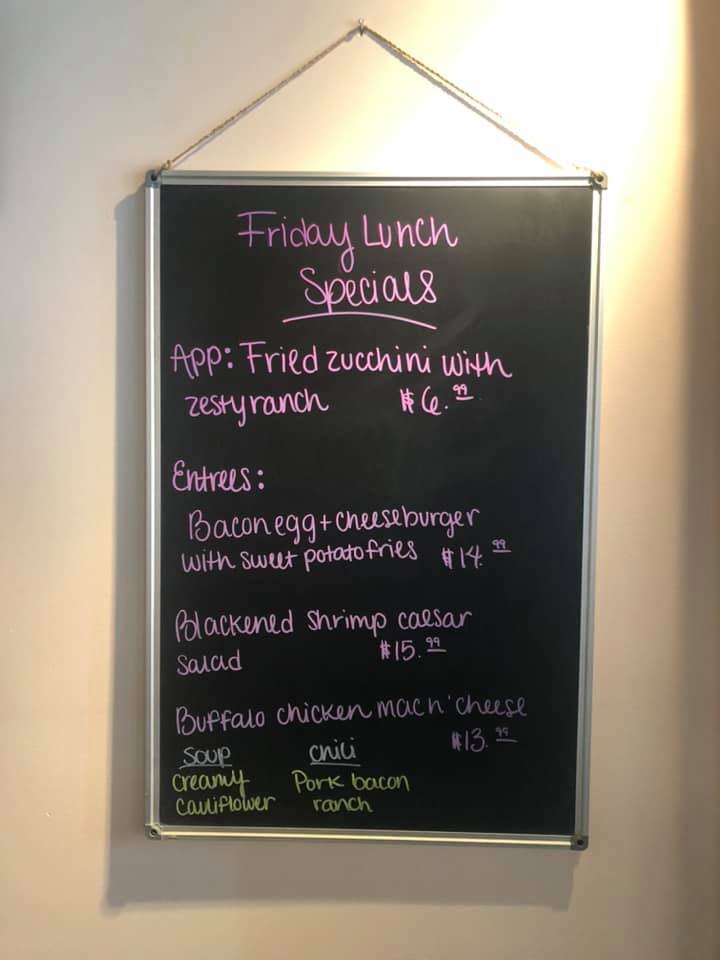 Friday Lunch
Specials
App: Fried zucchini with
zesty ranch $6.99
Entrees:
Bacon egg + cheeseburger
with sweet potato fries $14.99
Blackened shrimp caesar
salad $15.99
Buffalo chicken mac n' cheese
$13.99
soup chili
creamy Pork bacon
cauliflower ranch